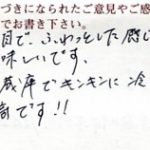 づきになられたご意見やご感
でお書き下さい。
目で、ふわっとした感じ
味しいです。
蔵庫でキンキンに冷
高です!!